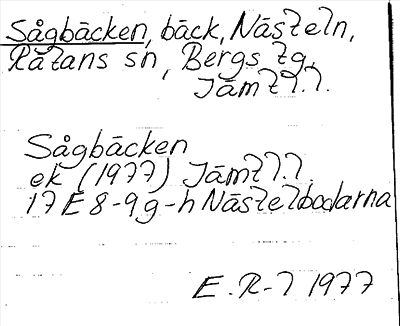 Sågbäcken, bäck, Nästeln,
Rätans sn, Bergs tg,
Jämtl.l.
Sågbäcken
ek (1977) Jämtl.l.
17E 8-9g-h Nästelbodarna
E.R-l 1977